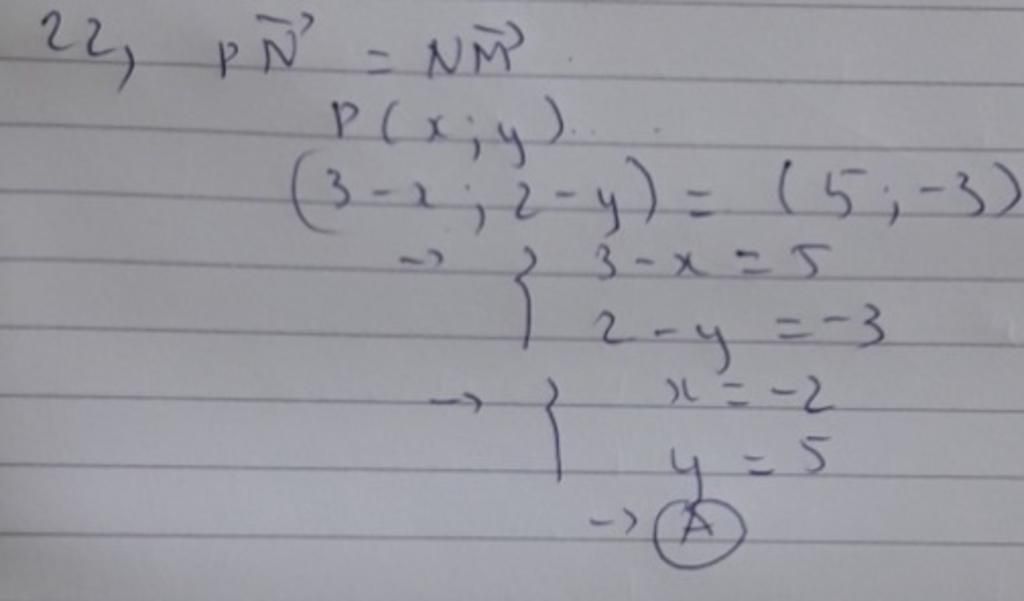 22, PN⃗ = NM⃗
P(x;y)
(3-x;2-y) = (5;-3)
→ { 3-x = 5
2-y = -3
→ { x = -2
y = 5
→ A